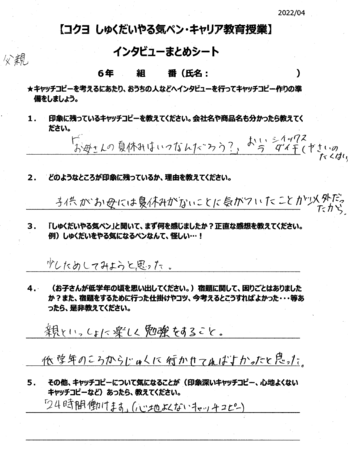 2022/04
【コクヨ しゅくだいやる気ペン・キャリア教育授業】
インタビューまとめシート
父親
6年　　組　　番（氏名：　　　　　　　　）
★キャッチコピーを考えるにあたり、おうちの人などへインタビューを行ってキャッチコピー作りの準
備をしましょう。
1．　印象に残っているキャッチコピーを教えてください。会社名や商品名も分かったら教えてく
ださい。
「お母さんの夏休みはいつなんだろう？」
2．　どのようなところが印象に残っているか、理由を教えてください。
子供がお母には夏休みがないことに気がついたことが意外だっ
たから。
3．　「しゅくだいやる気ペン」と聞いて、まず何を感じましたか？正直な感想を教えてください。
例）しゅくだいをやる気になるペンなんて、怪しい…！
少しためしてみようと思った。
4．　（お子さんが低学年の頃を思い出してください。）宿題に関して、困りごとはありました
か？また、宿題をするために行った仕掛けやコツ、今考えるとこうすればよかった・・・等あ
ったら、是非教えてください。
親といっしょに楽しく勉強をすること。
低学年のころからじゅくに行かせてればよかったと思った。
5．　その他、キャッチコピーについて気になることが（印象深いキャッチコピー、心地よくない
キャッチコピーなど）あったら、教えてください。
「24時間働けます」（心地よくないキャッチコピー）